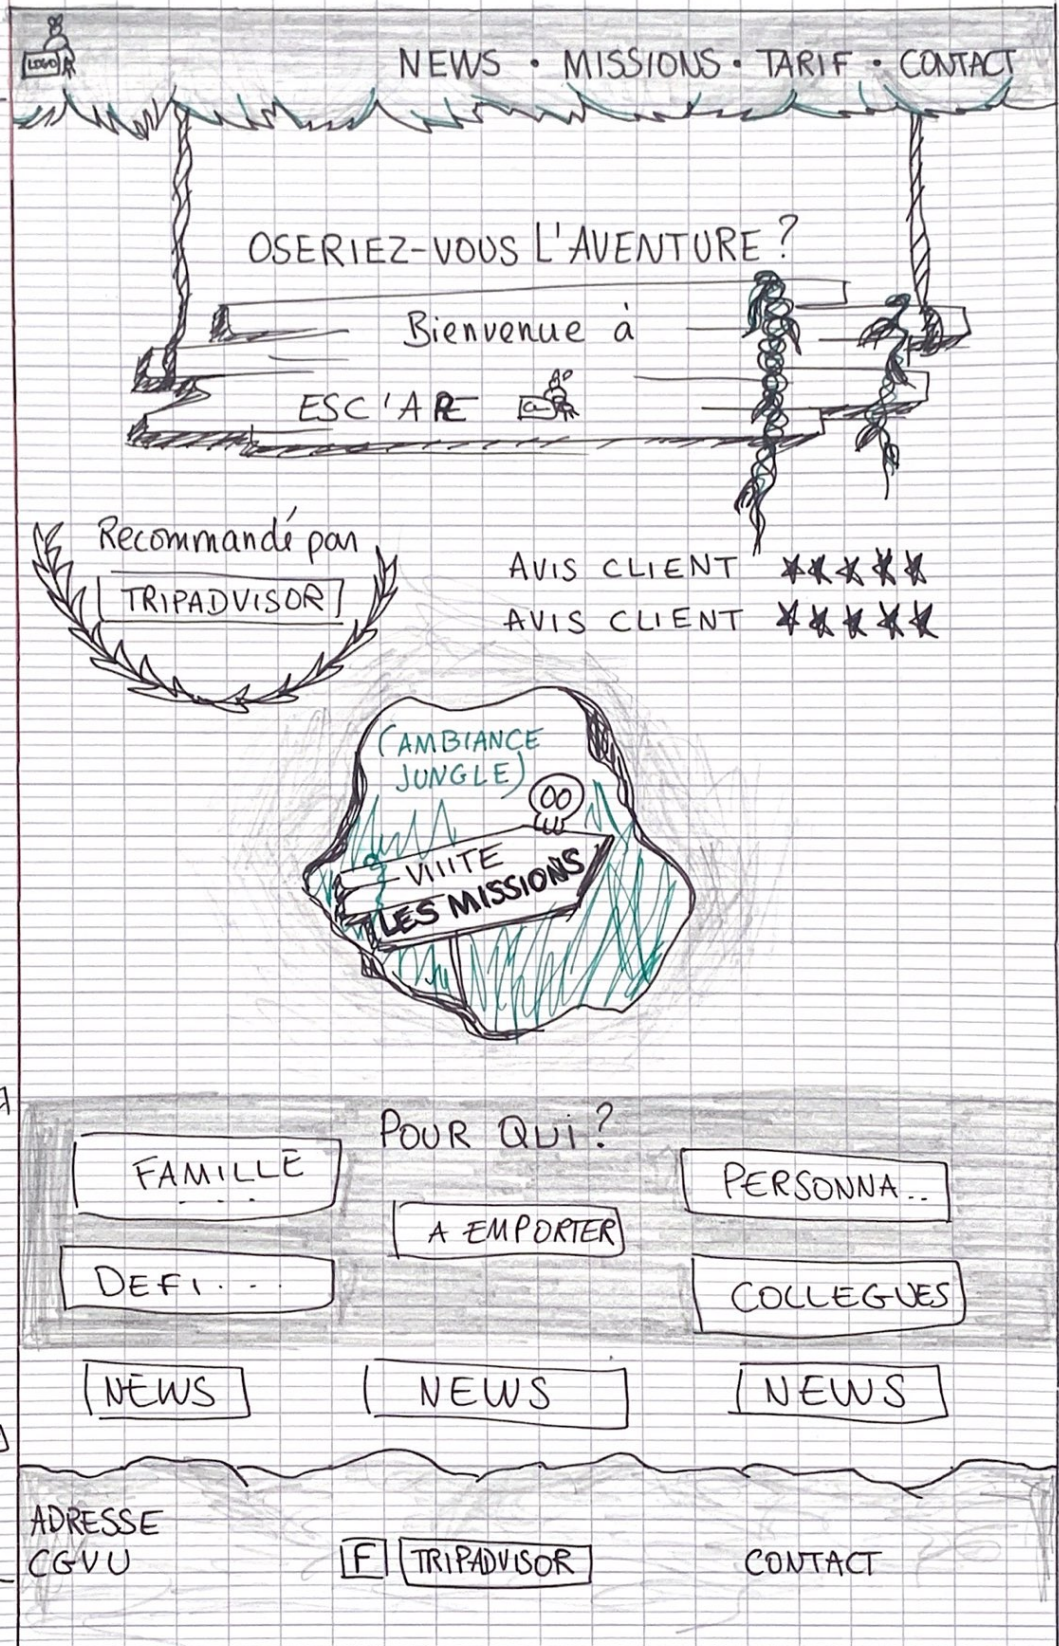 LOGO
NEWS • MISSIONS • TARIF • CONTACT
OSERIEZ-VOUS L'AVENTURE ?
Bienvenue à
ESC'APE
Recommandé par
TRIPADVISOR
AVIS CLIENT ★★★★★
AVIS CLIENT ★★★★★
(AMBIANCE
JUNGLE)
VIIITE
LES MISSIONS
POUR QUI ?
FAMILLE
....
PERSONNA..
A EMPORTER
DEFI....
COLLEGUES
NEWS NEWS NEWS
ADRESSE
CGVU
F TRIPADVISOR
CONTACT